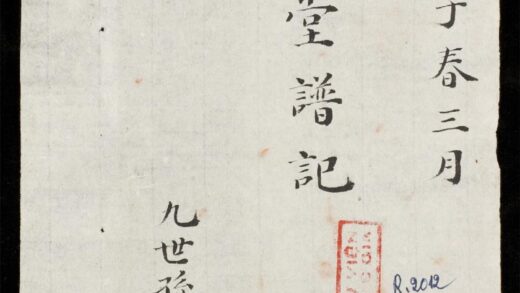 子春三月
堂譜記
九世孫
R.2012